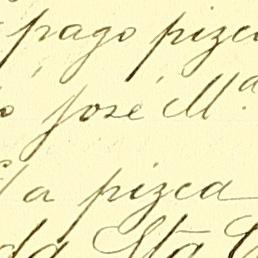 pago pizca
José Mª
a pizca
da Sta